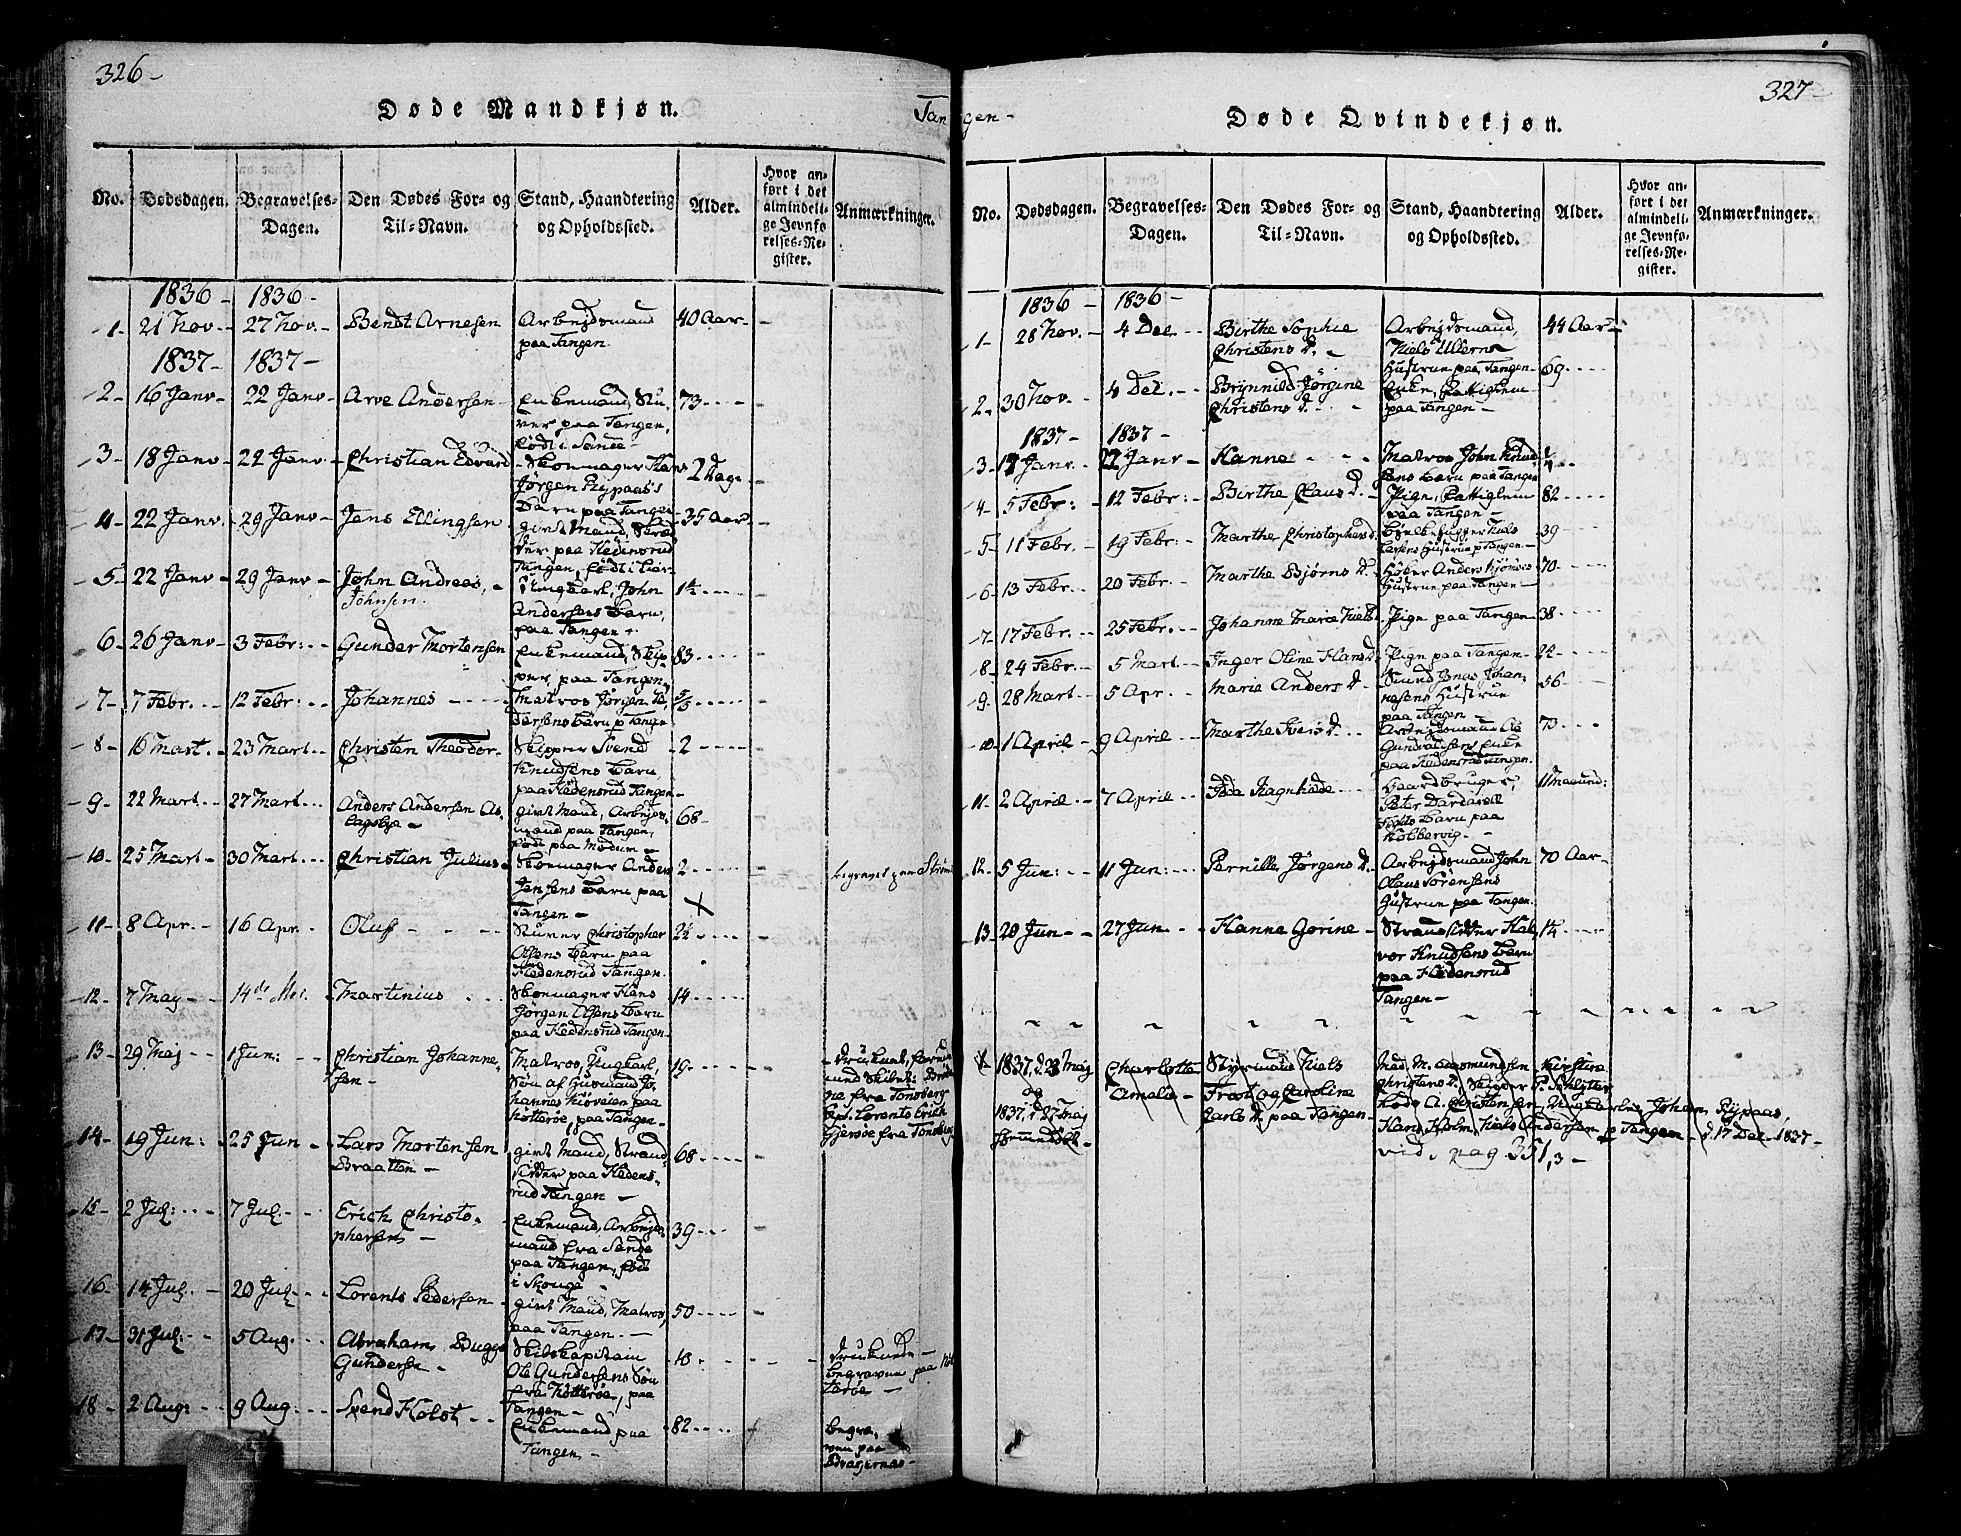 326-
Døde Mandkjøn.
Tangen-
No.
Dødsdagen.
Begravelses-Dagen.
Den Dødes For- og Til-Navn.
Stand, Haandtering og Opholdssted.
Alder.
Hvor anført i det almindelige Jevnførelses-Register.
Anmærkninger.
1836- 1836-
1- 21 Nov.- 27 Nov.- Bendt Arnesen Arbejdsmand 40 Aar-
paa Tangen.
1837- 1837-
2- 16 Janv- 22 Janv- Arve Andersen- Enkemand, Stu- 73
ver paa Tangen,
født i Sande-
3- 18 Janv- 22 Janv.- Christian Edvard- Skomager Hans 2 Dage
Jørgen Rypaas's
Barn paa Tangen
4- 22 Janv.- 29 Janv- Jens Ellingsen givt Mand, Skræ- 35 Aar
der paa Hedensrud
Tangen, født i Lier-
5- 22 Janv- 29 Janv- John Andreas, Ungkarl, John 1¼
Johnsen. Andersens Barn,
paa Tangen-
6- 26 Janv- 3 Febr:- Gunder Mortensen Enkemand, Skip- 83
per, paa Tangen-
7- 7 Febr. 12 Febr: Johannes Matros Jørgen Pe-
dersens Barn p Tangen
8- 16 Mart.- 23 Mart. Christen Theodor- Skipper Svend 2
Knudsens Barn,
paa Hedensrud Tangen-
9- 22 Mart. 27 Mart. Anders Andersen As- givt Mand, Arbejds- 68-
lagsbye- mand paa Tangen,
født paa Modum-
10- 25 Mart- 30 Mart. Christian Julius- Skomager Anders 2
Jensens Barn paa
Tangen-
begravet paa Strøms
11- 8 Apr. 16 Apr. Oluf Stuver Christopher 2½
Olsens Barn paa
Hedensrud Tangen.
12- 7 May 14de Mai. Martinius Skomager Hans 14
Jørgen Olsens Barn
paa Hedensrud Tangen-
13- 29 Maj 1 Jun: Christian Johanne- Matros, Ungkarl, 19
sen- Søn af Husmand Jo-
hannes
paa Tangen-
Druknet,
fra Tønsberg
Capt. Lorents Erich
fra Tønsberg
14- 19 Jun: 25 Jun- Lars Mortensen givt Mand, Strand- 68
Braatten- sidder paa Hedens-
rud Tangen-
15- 2 Jul: 7 Jul- Erich Christo- Enkemand, Arbejds- 39
phersen- mand fra Sande
paa Tangen, født
i Skouge-
16- 14 Jul. 20 Jul- Lorents Pedersen- givt Mand, Matros, 50
paa Tangen.-
17- 31 Jul:- 5 Aug. Abraham Bugge Skibskapitain 10
Gundersen- Ole Gundersens Søn
fra Nøtterøe, paa
Tangen-
Druknede-
begraven paa Nøt-
terøe-
18- 2 Aug: 9 Aug: Svend Holst Enkemand paa 82
Tangen-
begra-
ven paa
Bragernes-
327-
Døde Qvindekjøn.
No.
Dødsdagen.
Begravelses-Dagen.
Den Dødes For- og Til-Navn.
Stand, Haandtering og Opholdssted.
Alder.
Hvor anført i det almindelige Jevnførelses-Register.
Anmærkninger.
1836- 1836-
1- 28 Nov.- 4 Dec.- Birthe Sophie Arbejdsmand, 44 Aar-
Christens D.- Niels Ullerns
Hustrue paa Tangen-
2- 30 Nov.- 4 Dec.- Brynnild Jørgine Enke, Fattiglem 69
Christens D. paa Tangen-
1837- 1837-
3- 17 Janv. 22 Janv- Hanne Matros John Knud- ¼
sens Barn paa Tangen
4- 5 Febr: 12 Febr: Birthe Claus D. Pige, Fattiglem 82
paa Tangen-
5- 11 Febr. 19 Febr: Marthe Christophers D. Niels 39
Larsens Hustrue p Tangen-
6- 13 Febr. 20 Febr: Marthe Bjørns D. Høker Anders 70
Hustrue paa Tangen-
7- 17 Febr. 25 Febr. Johanne Marie Niels D. Pige paa Tangen- 38
8- 24 Febr. 5 Mart. Inger Oline Hans D. Pige paa Tangen- 24
9- 28 Mart. 5 Apr. Marie Anders D. Smed Jonas Johan- 56
nesens Hustrue
paa Tangen-
10- 1 April 9 April Marthe Ivers D. Arbejdsmand Ole 73
Gundvaldsens Enke
paa Hedensrud Tangen.
11- 2 April 7 April Ida Ragnhilde Gaardbruger, 11 Maaned:
Peter Dardanell
Barn paa
Kobbervig.
12- 5 Jun: 11 Jun: Pernille Jørgens D. Arbejdsmand John 70 Aar-
Olaus Sørensens
Hustrue paa Tangen.
13- 20 Jun- 27 Jun- Hanne Gorine- Strandsidder Hal- 1¼
vor Knudsens Barn
paa Hedensrud
Tangen-
1- 1837, d. 23 Maj Charlotte Styrmand Niels Mad. M. Aasmundsen Kirstine
og Amalie- Frost og Caroline Christens D. Skipper P. Schlytter
1837, d. 27 Maj Carls D. paa Tangen A. Christensen, Ungkarlene Johan Rypaas,
Hans Holm, Niels Andersen p Tangen- d. 17 Dec- 1837-
vid. pag. 351, 3-